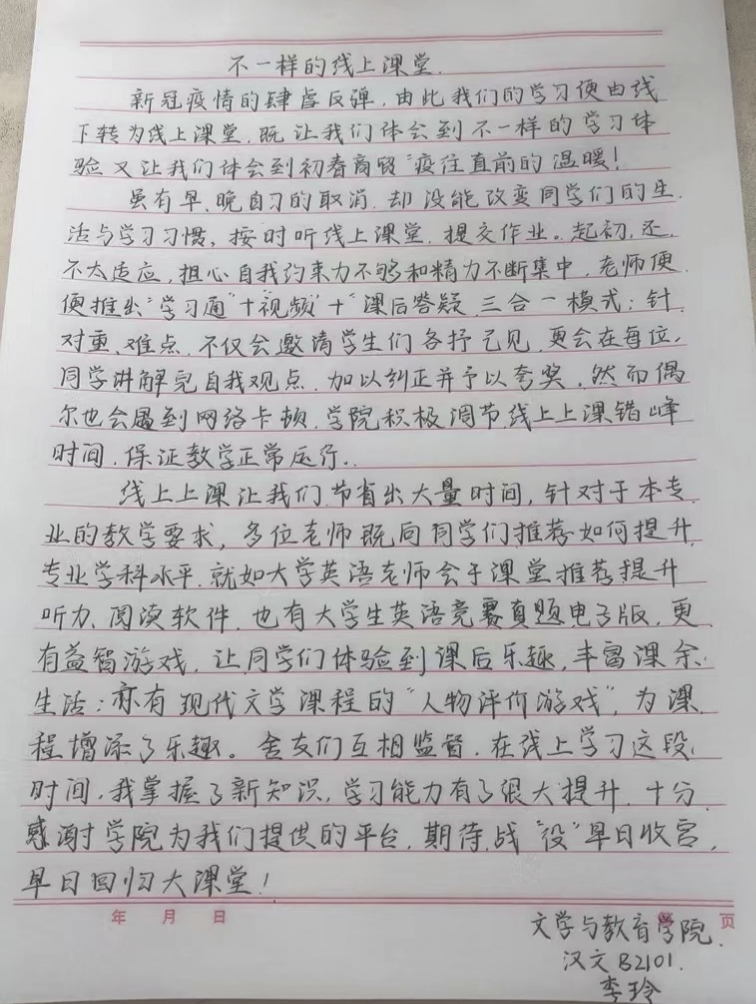 不一样的线上课堂.
新冠疫情的肆虐反弹,由此我们的学习便由线
下转为线上课堂,既让我们体会到不一样的学习体
验又让我们体会到初春商贸“疫往直前的温暖!
虽有早、晚自习的取消,却没能改变同学们的生
活与学习习惯,按时听线上课堂,提交作业。起初,还
不太适应,担心自我约束力不够和精力不断集中,老师便
便推出“学习通”+“视频”+“课后答疑,三合一模式;针
对重、难点,不仅会邀请学生们各抒己见,更会在每位
同学讲解完自我观点,加以纠正并予以夸奖,然而偶
尔也会遇到网络卡顿,学院积极调节线上上课错峰
时间,保证教学正常运行..
线上上课让我们节省出大量时间,针对于本专
业的教学要求,多位老师既向同学们推荐如何提升
专业学科水平,就如大学英语老师会于课堂推荐提升
听力、阅读软件,也有大学生英语竞赛真题电子版,更
有益智游戏,让同学们体验到课后乐趣,丰富课余
生活;亦有现代文学课程的“人物评价游戏”,为课
程增添了乐趣。舍友们互相监督,在线上学习这段
时间,我掌握了新知识,学习能力有了很大提升,十分
感谢学院为我们提供的平台,期待战“役”早日收官,
早日回归大课堂!
年 月 日 页
文学与教育学院
汉文B2101.
李玲